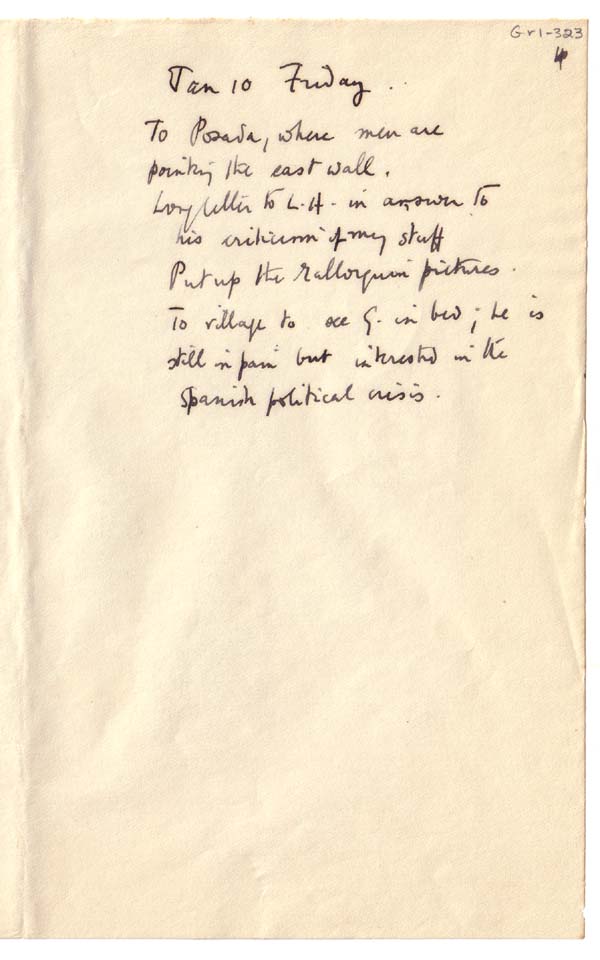 Gr1-323
4
Jan 10 Friday.
To Posada, where men are
pointing the east wall.
Long letter to L.H. in answer to
his criticism of my stuff
Put up the Mallorquin pictures.
To village to see G. in bed; he is
still in pain but interested in the
Spanish political crisis.